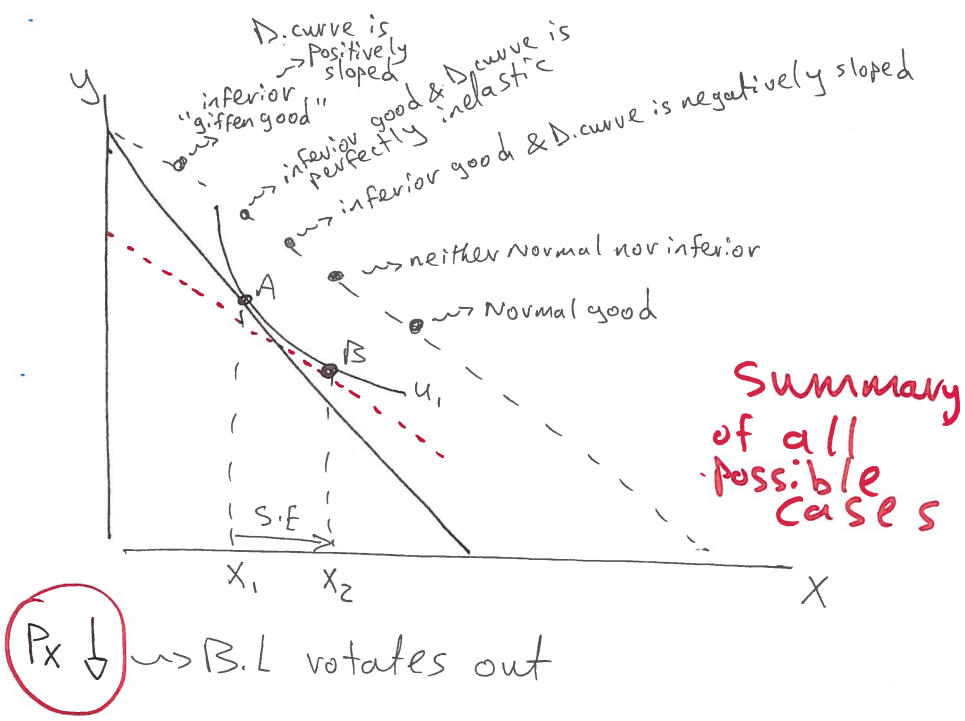 D.curve is
Positively
sloped
inferior
"giffen good"
inferior good & D.curve is
perfectly inelastic
inferior good & D.curve is negatively sloped
neither Normal nor inferior
Normal good
y
A
B
u₁
Summary
of all
possible
cases
S.E
X₁
X₂
X
Px ↓
B.L rotates out